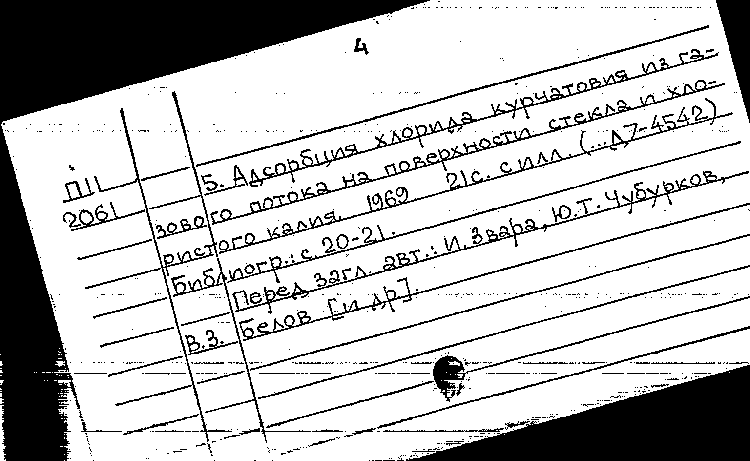 4
П11
2061
5. Адсорбция хлорида курчатовия из га-
зового потока на поверхности стекла и хло-
ристого калия. 1969 21с. с илл. (...Д7-4542)
Библиогр.: с. 20-21.
Перед загл. авт.: И. Звара, Ю.Т. Чубурков,
В.З. Белов [и др].